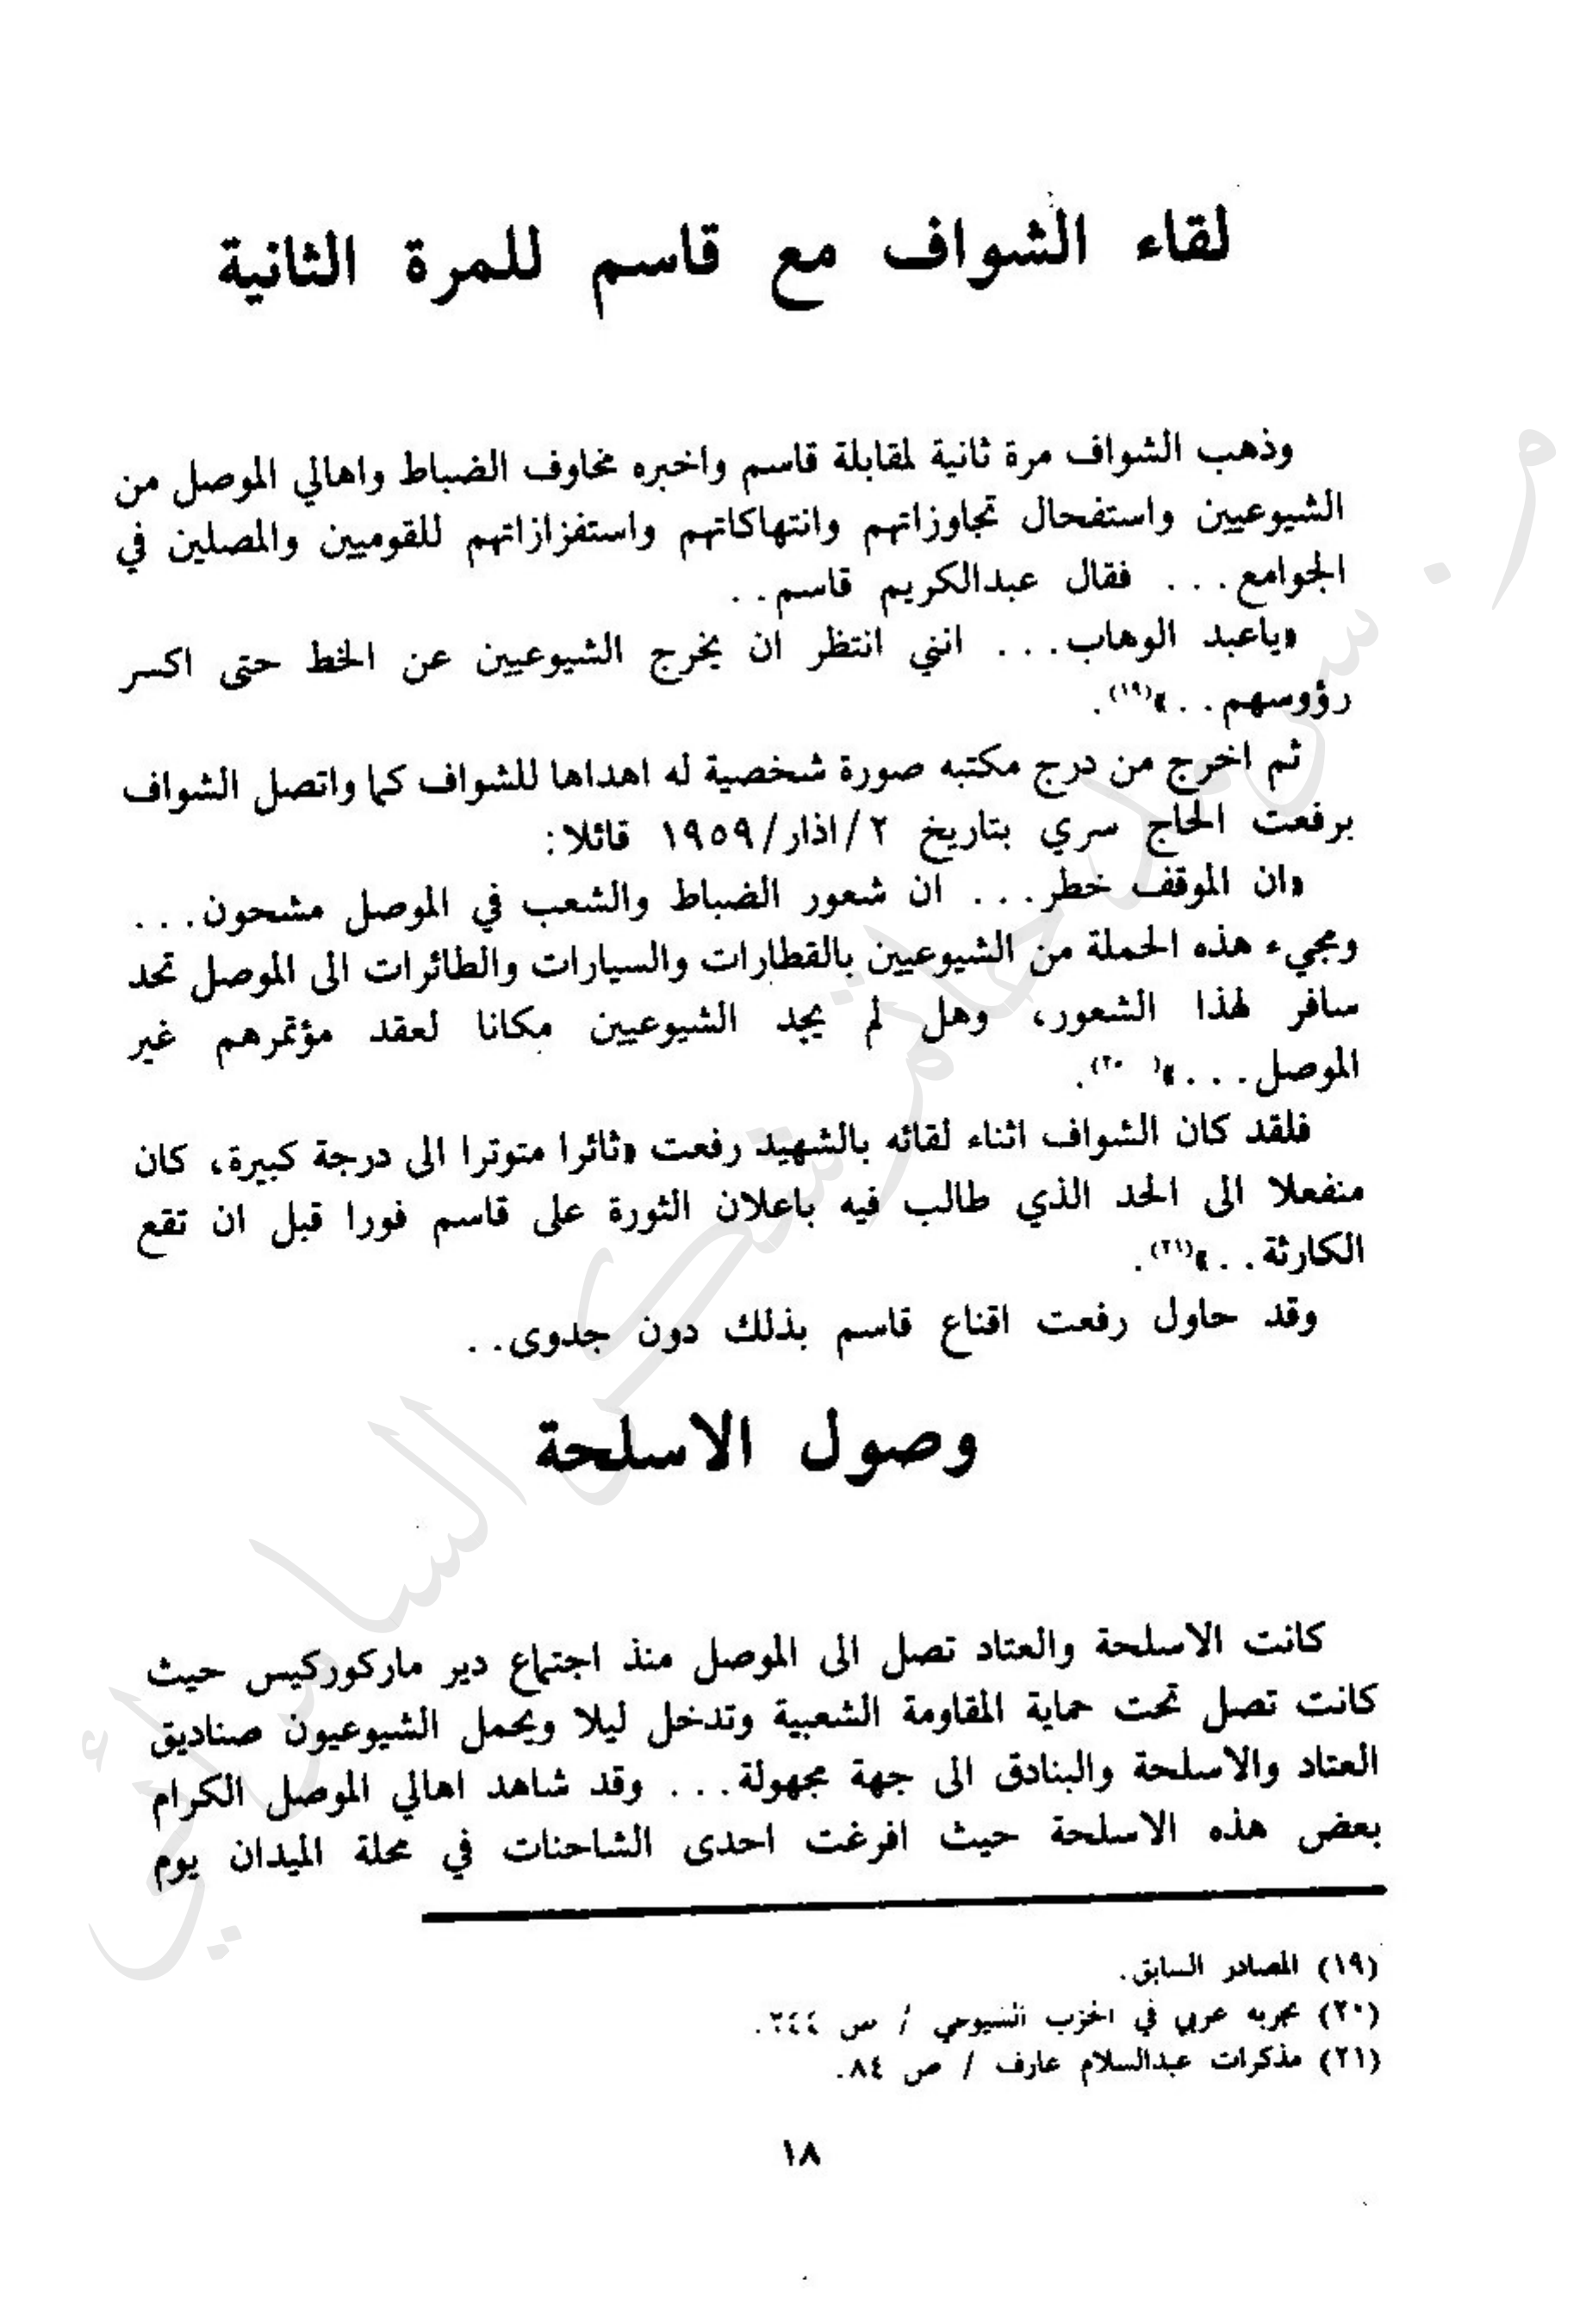 لقاء الشواف مع قاسم للمرة الثانية
وذهب الشواف مرة ثانية لمقابلة قاسم واخبره مخاوف الضباط واهالي الموصل من
الشيوعيين واستفحال تجاوزاتهم وانتهاكاتهم واستفزازاتهم للقوميين والمصلين في
الجوامع... فقال عبدالكريم قاسم..
«ياعبد الوهاب... انني انتظر ان يخرج الشيوعيين عن الخط حتى اكسر
رؤوسهم..»(١٩).
ثم اخرج من درج مكتبه صورة شخصية له اهداها للشواف كما واتصل الشواف
برفعت الحاج سري بتاريخ ٢/اذار/١٩٥٩ قائلا:
«ان الموقف خطر... ان شعور الضباط والشعب في الموصل مشحون...
ومجيء هذه الحملة من الشيوعيين بالقطارات والسيارات والطائرات الى الموصل تحد
سافر لهذا الشعور، وهل لم يجد الشيوعيين مكانا لعقد مؤتمرهم غير
الموصل...»(٢٠).
فلقد كان الشواف اثناء لقائه بالشهيد رفعت «ثائرا متوترا الى درجة كبيرة، كان
منفعلا الى الحد الذي طالب فيه باعلان الثورة على قاسم فورا قبل ان تقع
الكارثة..»(٢١).
وقد حاول رفعت اقناع قاسم بذلك دون جدوى..
وصول الاسلحة
كانت الاسلحة والعتاد تصل الى الموصل منذ اجتماع دير ماركوركيس حيث
كانت تصل تحت حماية المقاومة الشعبية وتدخل ليلا ويحمل الشيوعيون صناديق
العتاد والاسلحة والبنادق الى جهة مجهولة... وقد شاهد اهالي الموصل الكرام
بعض هذه الاسلحة حيث افرغت احدى الشاحنات في محلة الميدان يوم
(١٩) المصادر السابق.
(٢٠) تجربه عربي في الحزب الشيوعي / ص ٢٤٤.
(٢١) مذكرات عبدالسلام عارف / ص ٨٤.
١٨